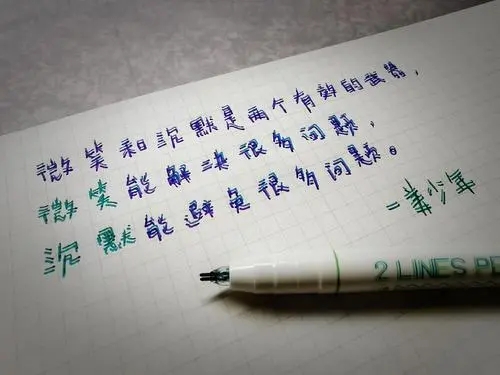 微笑和沉默是两个有效的武器，
微笑能解决很多问题，
沉默能避免很多问题。
—美少年
2 LINES PE